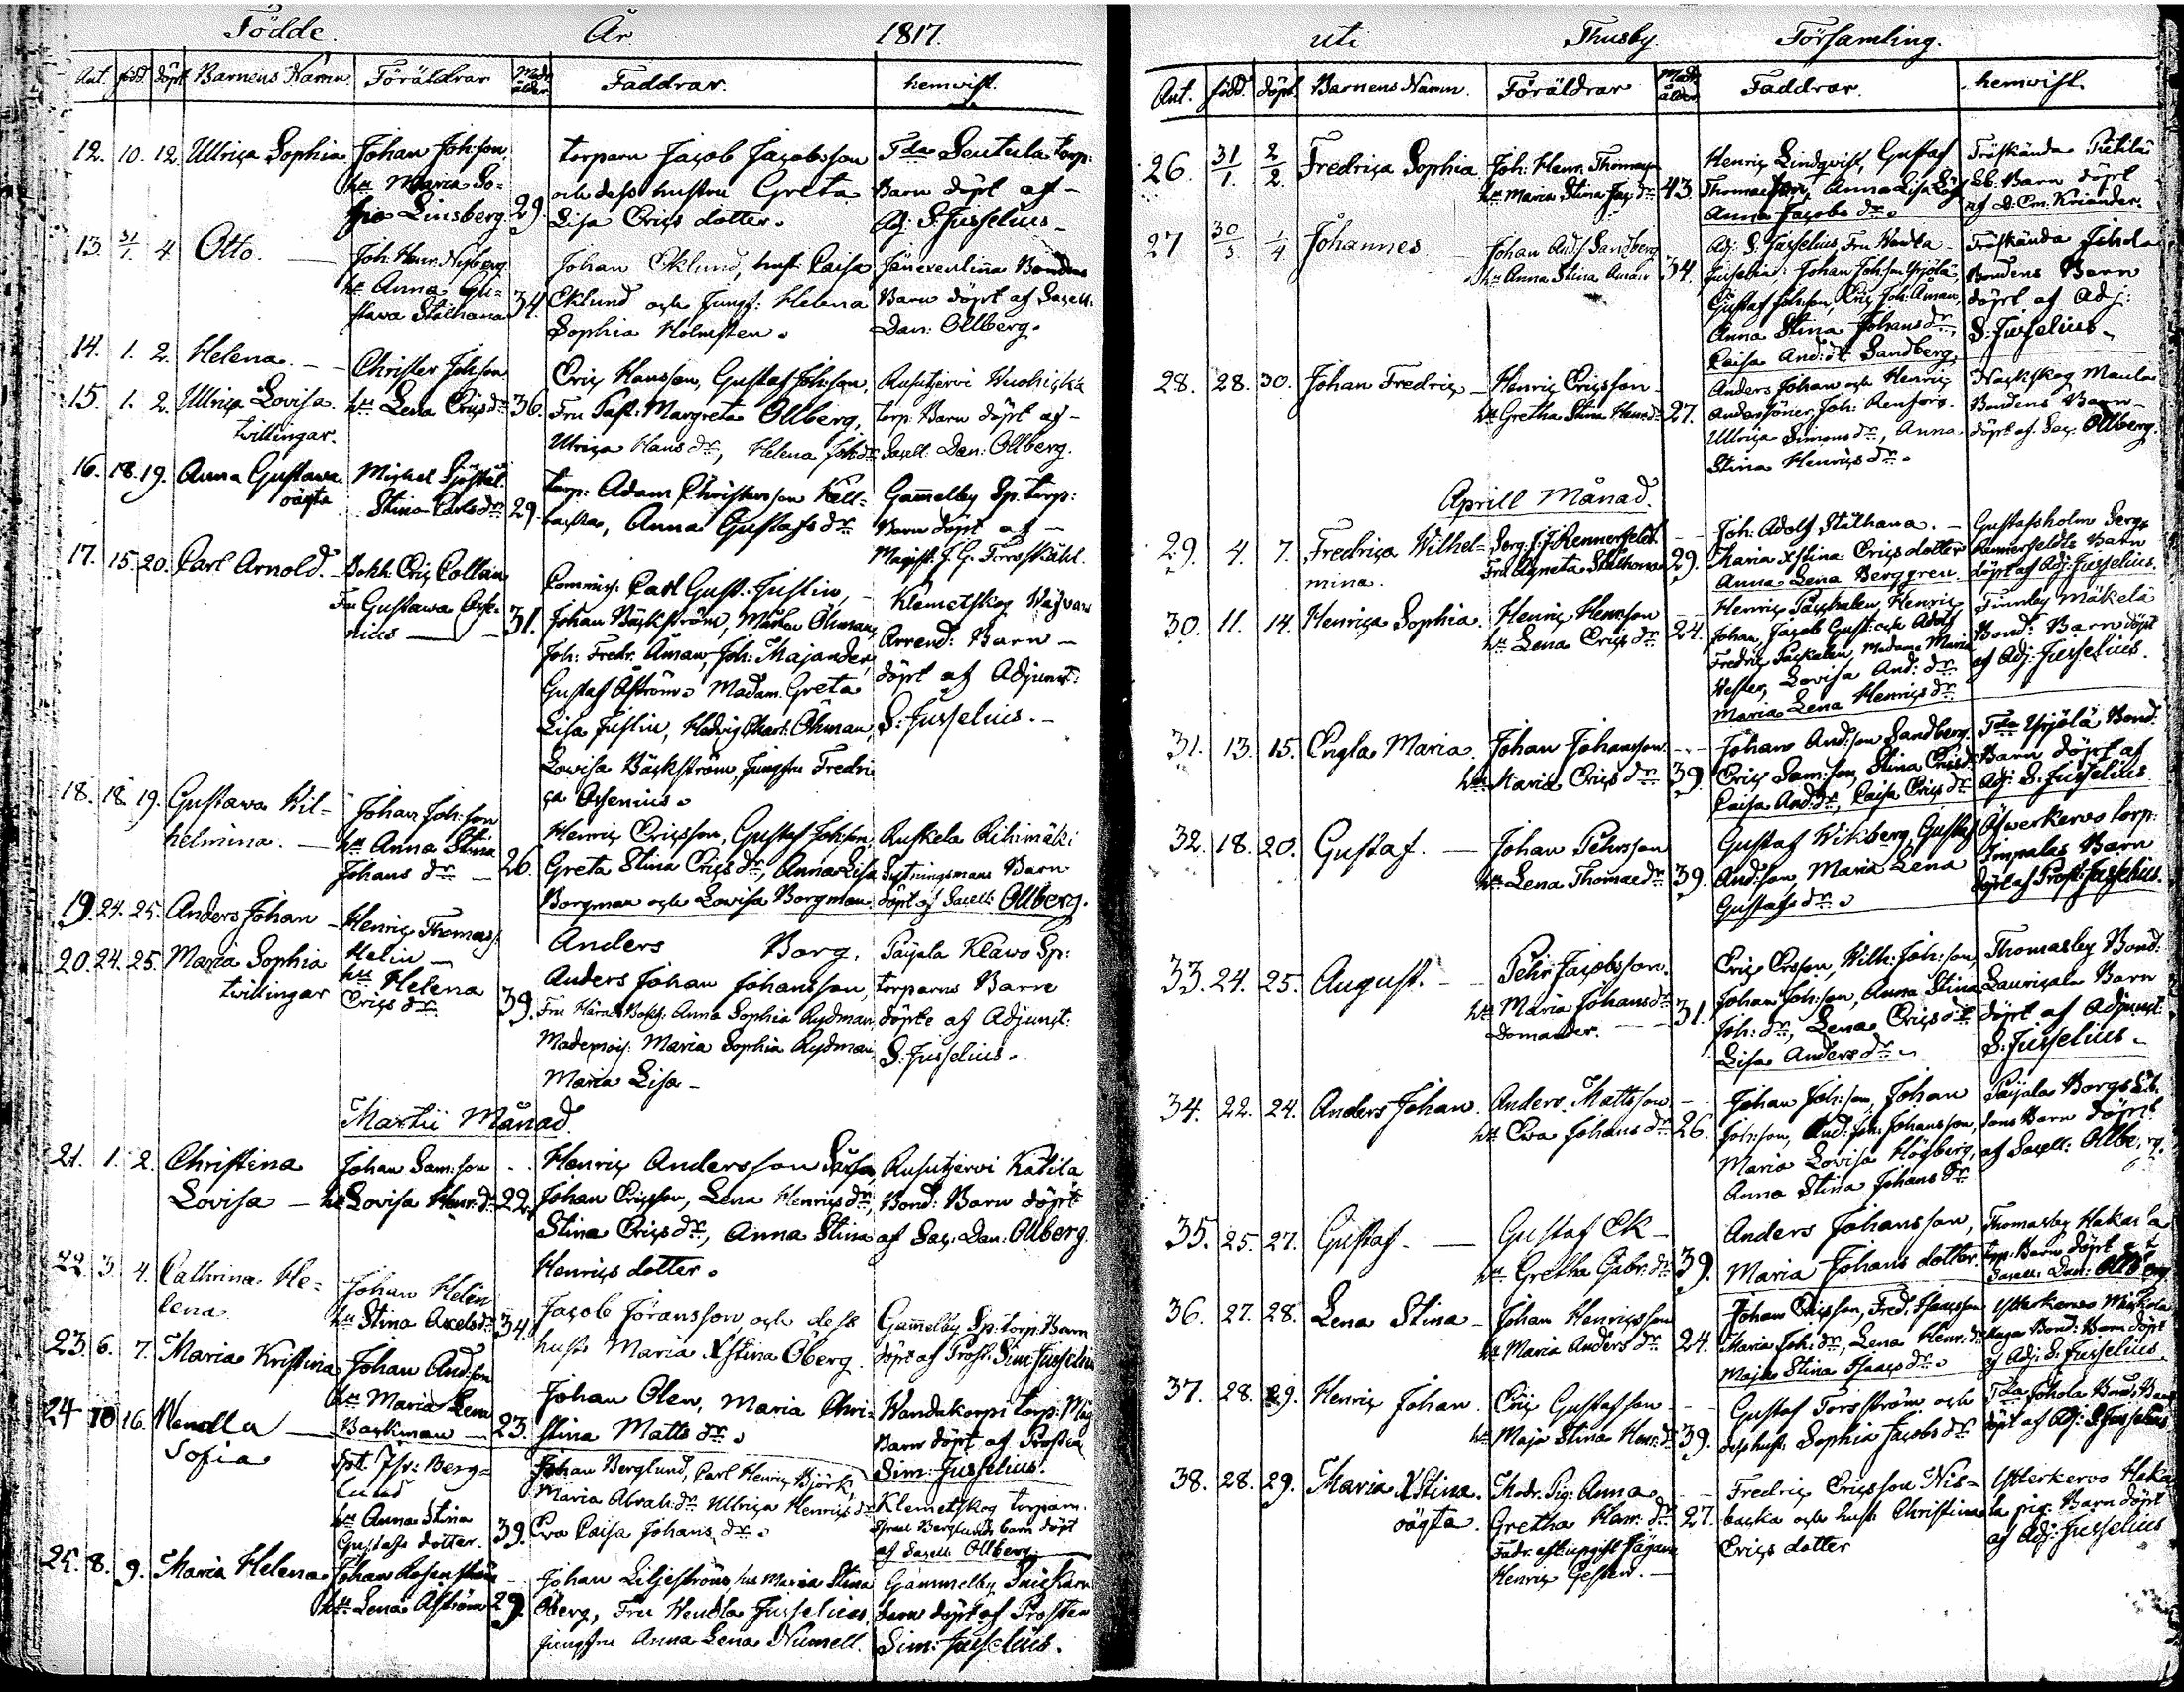 Födde. År 1817.
Ant. född. döpt Barnens Namn. Föräldrar Modr. ålder Faddrar. hemvist.
12. 10. 12. Ullrica Sophia Johan Joh:son
hu Maria So-
fia Linsberg 29.
torparn Jacob Jacobsson
och dess hustru Greta
Lisa Erics dotter.
Tda Seutula torp:
Barn döpt af
Adj. S: Jusselius
13. 31/1. 4 Otto. Joh: Henr. Nyberg
hu Anna Gu-
stava Stålhana 34.
Johan Eklund, hust. Caisa
Eklund och Jungf: Helena
Sophia Holmsten.
Bondens
Barn döpt af Sacell:
Dan: Ollberg.
14. 1. 2. Helena. Christer Joh:son
15. 1. 2. Ulrica Lovisa. hu Lena Ericsdr 36.
twillingar.
Eric Hansson, Gustaf Joh:son,
Fru Past: Margreta Ollberg,
Ulrica Hans dr, Helena Joh:dr
Rusutjervi Wuohicka
torp: Barn döpt af
Sacell: Dan: Ollberg.
16. 18. 19. Anna Gustava Michel
oägta Stina Carls dr 29.
torp: Adam Christersson Kell-
backa, Anna Gustafs dr
Gammelby Sp. torp:
Barn döpt af
Magist. J. G.
17. 15. 20. Carl Arnold. Bokh: Eric Collan
Fru Gustava Asse-
nius 31.
Commiss: Carl Gust: Justin,
Johan Bäckström, Öhman,
Joh: Fredr. Åman, Joh: Majander,
Gustaf Åström. Madam. Greta
Lisa Justin, Hedvig Charl: Öhman,
Lovisa Bäckström, Jungfru Fredri
ca Assenius.
Klemetskog
Arrend: Barn
döpt af Adjunct:
S: Jusselius.
18. 18. 19. Gustava Wil-
helmina. Johan Joh:son
hu Anna Stina
Johans dr 26.
Henric Ericsson, Gustaf Joh:son,
Greta Stina Erics dr, Anna Lisa
Borgman och Lovisa Borgman.
Ruskela Rihimäki
Sytningsmans Barn
döpt af Sacell: Ollberg.
19. 24. 25. Anders Johan Henric Thomass.
20. 24. 25. Maria Sophia Helin
twillingar hu Helena
Erics dr 39.
Anders Borg,
Anders Johan Johansson,
Fru Anna Sophia Rydman,
Mademois: Maria Sophia Rydman,
Maria Lisa
Paijala Klawo Sp:
torparns Barn
döpte af Adjunct:
S: Jusselius.
Martii Månad.
21. 1. 2. Christina
Lovisa Johan Sam:son
hu Lovisa Henr: dr 22.
Henric Andersson
Johan Ericsson, Lena Henrics dr,
Stina Erics dr, Anna Stina
Henrics dotter.
Rusutjervi Katila
Bond: Barn döpt
af Sac: Dan: Ollberg.
22. 3. 4. Cathrina He-
lena Johan Helin
hu Stina Axels dr 34.
Jacob Joransson och dess
hust: Maria Xstina Öberg.
Gammelby Sp: torp: Barn
döpt af Prost: Sim: Jusselius
23. 6. 7. Maria Kristina Johan And:son
hu Maria Lena
Backman 23.
Johan Olen, Maria Chri-
stina Matts dr.
Wandakorpi torp:
Barn döpt af Prosten
Sim: Jusselius.
24 10 16. Wendla
Sofia Isr: Berg-
lund
hu Anna Stina
Gustafs dotter. 39.
Johan Berglund, Carl Henric Björk,
Maria Abrah: dr Ulrica Henrics dr
Eva Caisa Johans dr.
Klemetskog torparn
Israel Berglunds barn döpt
af Sacell. Ollberg.
25. 8. 9. Maria Helena Johan
hu Lena Åström 29.
Johan Liljeström, hus Maria Stina
Öberg, Fru Wendla Jusselius,
jungfru Anna Lena Numell.
Gammelby
barn döpt af Prosten
Sim: Jusselius.
uti Thusby Församling.
Ant. född. döpt. Barnens Namn. Föräldrar Modr. ålder Faddrar. hemvist.
26. 31/1. 2/2. Fredrica Sophia. Joh: Henr. Thomasson
hu Maria Stina Jac: dr 43.
Henric Lindqvist, Gustaf
Thomasson, Anna Lisa
Anna Jacobs dr.
Träskända Pietilä
Barn döpt
27 30/3. 1/4 Johannes Johan And:s. Sandberg
hu Anna Stina Åman 34.
Adj: S. Jusselius, Fru Wendla
Jusselius: Johan Joh:son Yrjölä,
Gustaf Joh:son, Eric Joh: Åman,
Anna Stina Johans dr,
Caisa And: dr Sandberg,
Träskända Johola
Bondens Barn
döpt af Adj:
S. Jusselius
28. 28. 30. Johan Fredric Henric Ericsson
hu Gretha Stina Hans dr 27.
Anders Johan och Henric
Anderssöner, Joh: Renfors.
Ulrica Simons dr, Anna
Stina Henrics dr.
Nackskog Maula
Bondens Barn
döpt af Sac: Ollberg.
Aprill Månad.
29. 4. 7. Fredrica Wilhel-
mina. Serg: J. J. Rennerfeldt.
Fru Agneta Stålhana 29.
Joh: Adolf Stålhana.
Maria Xstina Erics dotter
Anna Lena Berggren.
Gustafsholm Serg:
Rennerfeldts Barn
döpt af Adj: Jusselius.
30. 11. 14. Henrica Sophia. Henric Henrsson
hu Lena Erics dr 24.
Henric Paschalen, Henric
Johan, Jacob Gust: och Adolf
Fredric Paschalen, Madame Maria
Hester, Lovisa And: dr
Maria Lena Henrics dr
Finnby Mäkelä
Bond: Barn döpt
af Adj: Jusselius.
31. 13. 15. Engla Maria. Johan Johansson
hu Maria Erics dr 39.
Johan And:son Sandberg.
Eric Sam:son, Stina Erics dr
Caisa And: dr, Caisa Erics dr
Tda Yrjölä Bond:
Barn döpt af
Adj: S: Jusselius
32. 18. 20. Gustaf. Johan Pehrsson
hu Lena Thomae dr 39.
Gustaf Wikberg, Gustaf
And:son, Maria Lena
Gustafs dr.
Öfwerkervo torp:
Impalas Barn
döpt af Prost: Jusselius.
33. 24. 25. August. Pehr Jacobsson.
hu Maria Johans dr
Domander. 31.
Eric Ersson, Wilh: Joh:son,
Johan Joh:son, Anna Stina
Joh: dr, Lena Erics dr
Lisa Anders dr
Thomasby Bond:
Lauricala Barn
döpt af Adjunct:
S: Jusselius
34. 22. 24. Anders Johan. Anders Mattsson
hu Eva Johans dr 26.
Johan Joh:son, Johan
Joh:son, And: Joh: Johansson,
Maria Lovisa Högberg,
Anna Stina Johans dr
Paijala Borgs
Barn döpt
af Sacell: Ollberg.
35. 25. 27. Gustaf. Gustaf Ek
hu Gretha Gabr: dr 39.
Anders Johansson,
Maria Johans dotter.
Thomasby Hakala
torp: Barn döpt af
Sacell: Dan: Ollberg
36. 27. 28. Lena Stina Johan Henricsson
hu Maria Anders dr 24.
Johan Ericsson, Fred. Isacsson
Maria Joh: dr, Lena Henr: dr
Maja Stina Isaacs dr.
Ytterkervo
Bond: Barn döpt
af Adj: S: Jusselius
37. 28. 29. Henric Johan. Eric Gustafsson
hu Maja Stina Henr: dr 39.
Gustaf Forsström och
dess hust: Sophia Jacobs dr
Tda Johola Bond: Barn
döpt af Adj: S. Jusselius
38. 28. 29. Maria Xstina. Modr. Pig: Anna
oägta. Gretha Henr: dr 27.
Fadr. eft: upgift
Henric
Fredric Ericsson Nis-
backa och hust: Christina
Erics dotter
Ytterkervo Haka
la pig: Barn döpt
af Adj: Jusselius